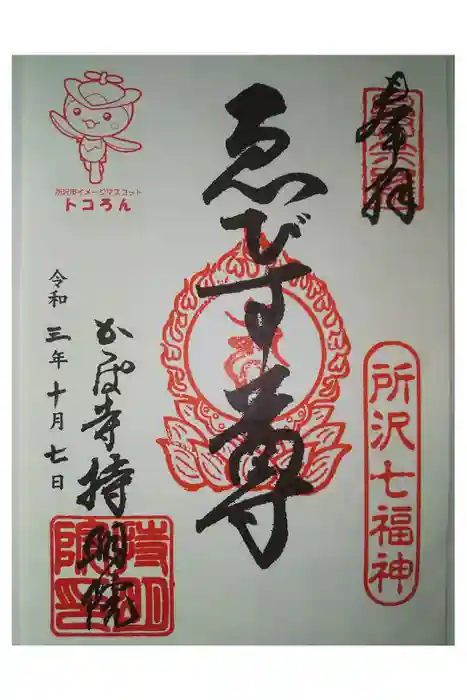 奉拝
所沢七福神
ゑびす尊
所沢市イメージマスコット
トコろん
かっぱ寺持明院
持明
院印
令和三年十月七日